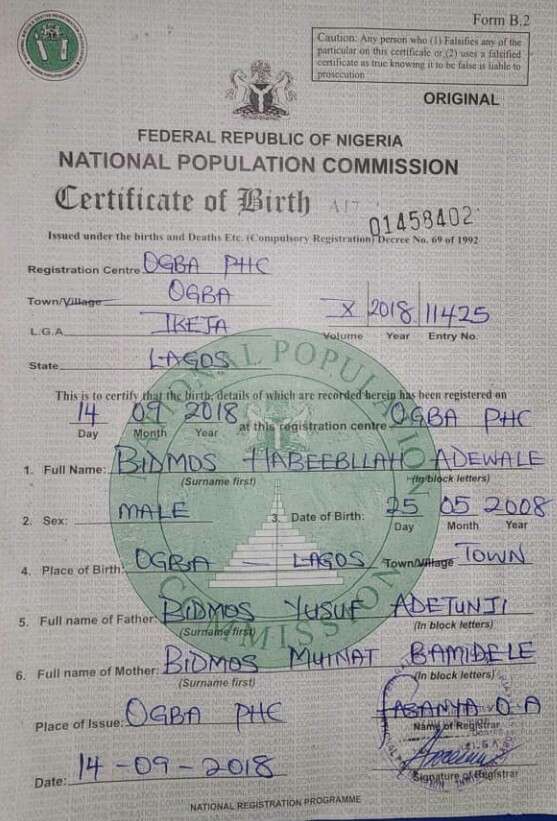 Form B.2
Caution: Any person who (1) Falsifies any of the
particular on this certificate or (2) uses a falsified
certificate as true knowing it to be false is liable to
prosecution
ORIGINAL
FEDERAL REPUBLIC OF NIGERIA
NATIONAL POPULATION COMMISSION
Certificate of Birth A17 01458402
Issued under the births and Deaths Etc. (Compulsory Registration) Decree No. 69 of 1992
Registration Centre OGBA PHC
Town/Village OGBA
X 2018 11425
Volume Year Entry No.
L.G.A. IKEJA
State LAGOS
This is to certify that the birth, details of which are recorded herein has been registered on
14 09 2018 at this registration centre OGBA PHC
Day Month Year
1. Full Name: BIDMOS HABEEBLLAH ADEWALE
(Surname first) (In block letters)
2. Sex: MALE 3. Date of Birth: 25 05 2008
Day Month Year
4. Place of Birth: OGBA - LAGOS Town/Village TOWN
5. Full name of Father: BIDMOS YUSUF ADETUNJI
(Surname first) (In block letters)
6. Full name of Mother: BIDMOS MUINAT BAMIDELE
(Surname first) (In block letters)
Place of Issue: OGBA PHC FABANYA O.A
Name of Registrar
Date: 14-09-2018
Signature of Registrar
NATIONAL REGISTRATION PROGRAMME
NATIONAL POPULATION COMMISSION